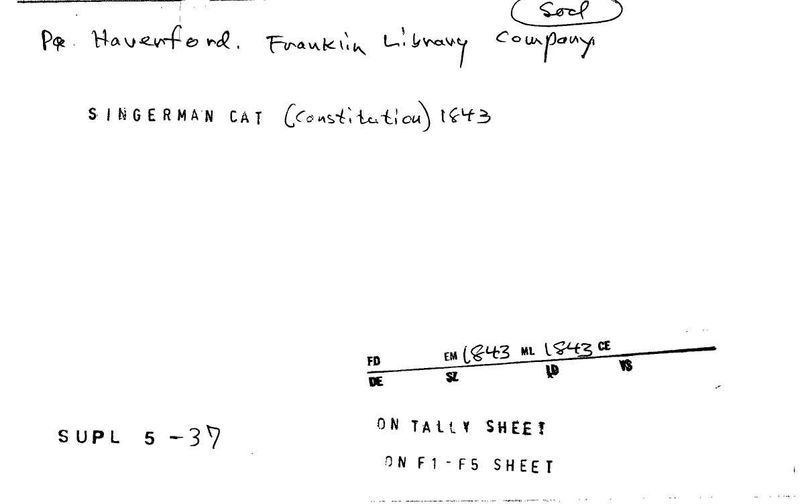 Socl
Pa. Haverford. Franklin Library Company.
SINGERMAN CAT (Constitution) 1843
FD EM 1843 ML 1843 CE
DE SZ LD VS
ON TALLY SHEET
SUPL 5 -37
ON F1-F5 SHEET